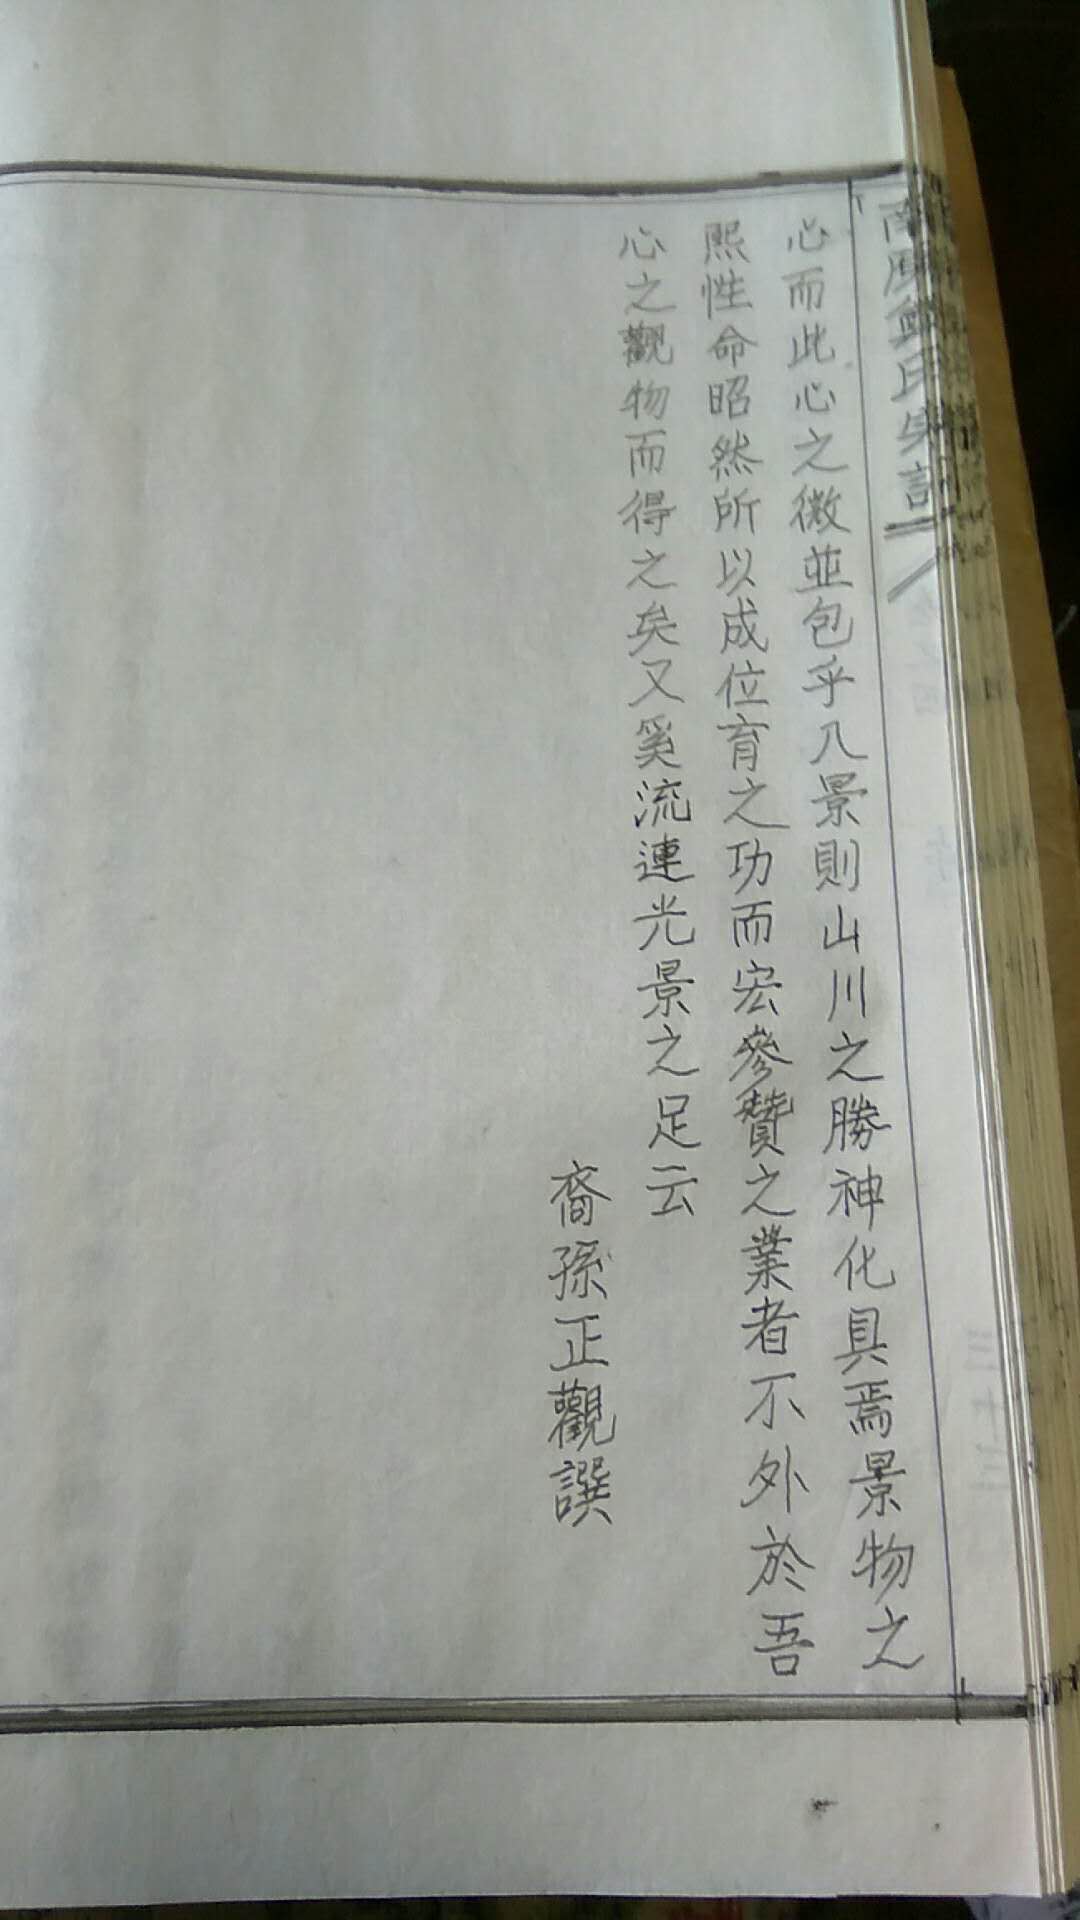 心而此心之微並包乎八景則山川之勝神化具焉景物之
熙性命昭然所以成位育之功而宏參贊之業者不外於吾
心之觀物而得之矣又奚流連光景之足云
裔孫正觀譔